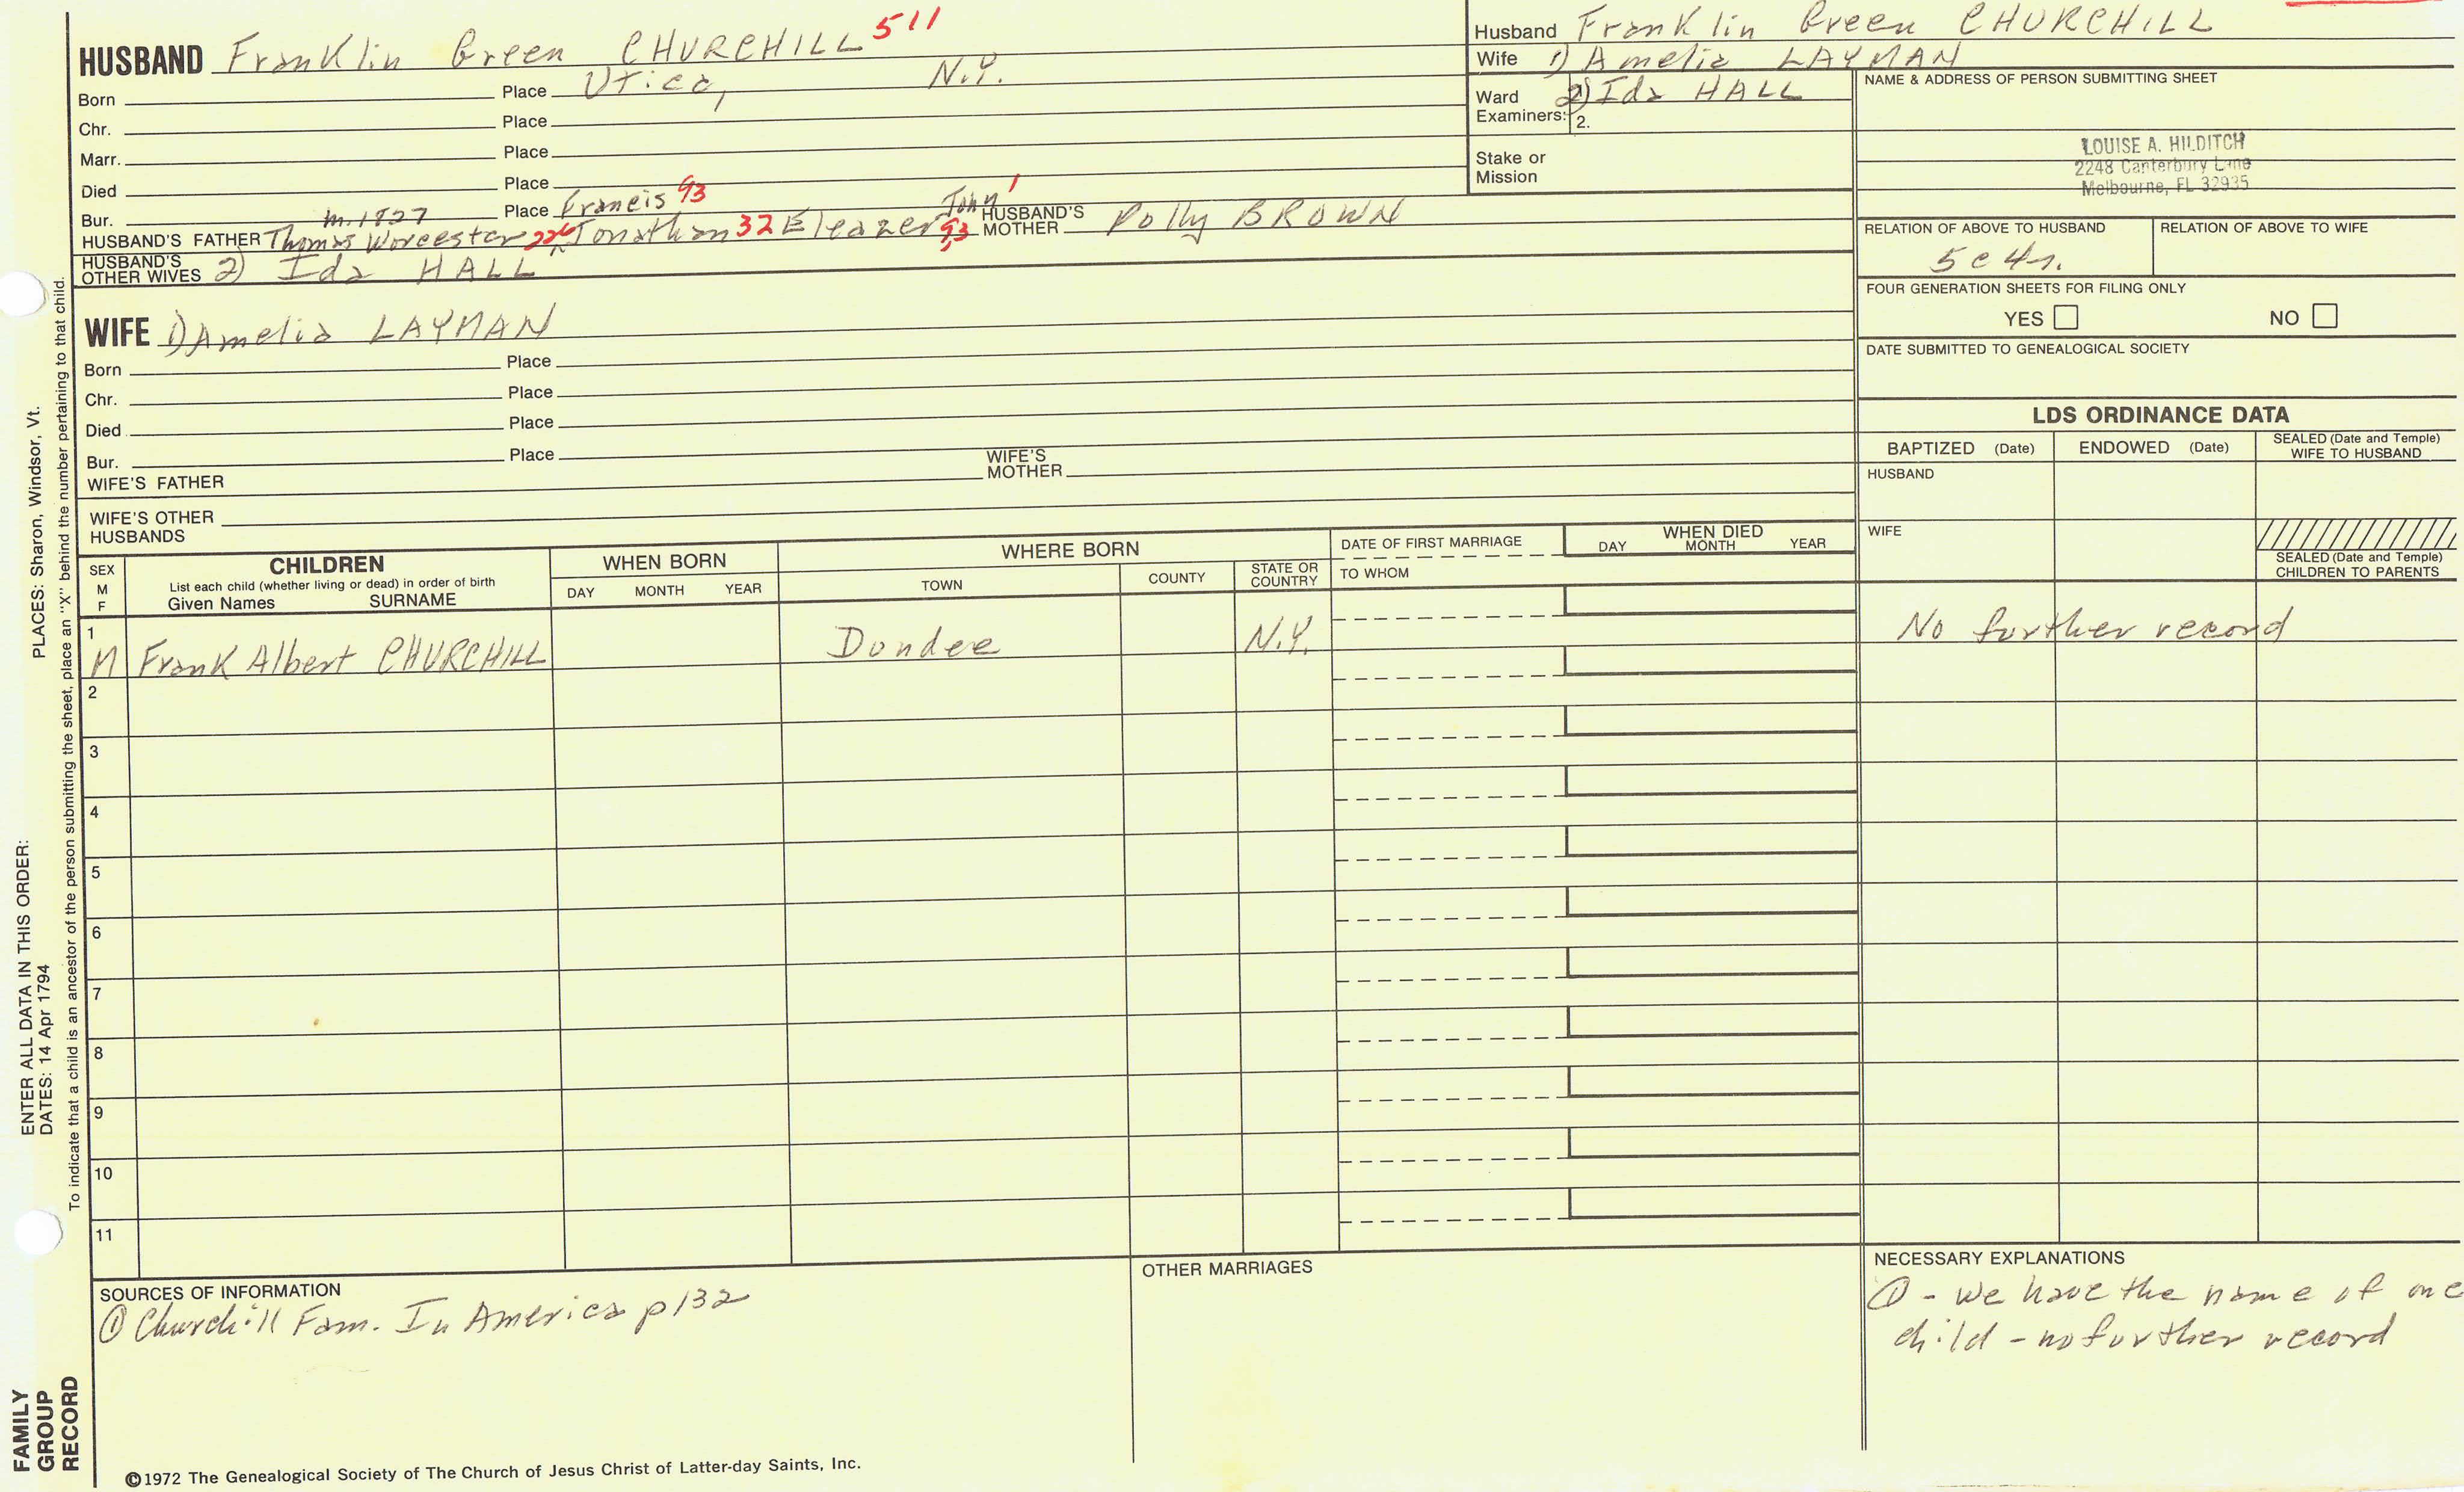 HUSBAND Franklin Green CHURCHILL 511
Born Place Utica, N.Y.
Chr. Place
Marr. Place
Died Place
Bur. m. 1827 Place Francis 93 John 1
HUSBAND'S FATHER Thomas Worcester 226 Jonathan 32 Eleazer 93 HUSBAND'S MOTHER Polly BROWN
HUSBAND'S OTHER WIVES 2) Ida HALL
Husband Franklin Green CHURCHILL
Wife 1) Amelia LAYMAN
Ward 2) Ida HALL
Examiners: 2.
Stake or Mission
NAME & ADDRESS OF PERSON SUBMITTING SHEET
LOUISE A. HILDITCH
2248 Canterbury Lane
Melbourne, FL 32935
RELATION OF ABOVE TO HUSBAND RELATION OF ABOVE TO WIFE
5c4r.
FOUR GENERATION SHEETS FOR FILING ONLY
YES NO
DATE SUBMITTED TO GENEALOGICAL SOCIETY
WIFE 1) Amelia LAYMAN
Born Place
Chr. Place
Died Place
Bur. Place
WIFE'S FATHER WIFE'S MOTHER
WIFE'S OTHER HUSBANDS
LDS ORDINANCE DATA
BAPTIZED (Date) ENDOWED (Date) SEALED (Date and Temple) WIFE TO HUSBAND
HUSBAND
WIFE
SEALED (Date and Temple) CHILDREN TO PARENTS
SEX M F
CHILDREN
List each child (whether living or dead) in order of birth
Given Names SURNAME
WHEN BORN
DAY MONTH YEAR
WHERE BORN
TOWN COUNTY STATE OR COUNTRY
DATE OF FIRST MARRIAGE
TO WHOM
WHEN DIED
DAY MONTH YEAR
1 M Frank Albert CHURCHILL Dundee N.Y. No further record
2
3
4
5
6
7
8
9
10
11
SOURCES OF INFORMATION
① Churchill Fam. In America p 132
OTHER MARRIAGES
NECESSARY EXPLANATIONS
① - We have the name of one
child - no further record
©1972 The Genealogical Society of The Church of Jesus Christ of Latter-day Saints, Inc.
FAMILY GROUP RECORD
ENTER ALL DATA IN THIS ORDER:
DATES: 14 Apr 1794 PLACES: Sharon, Windsor, Vt.
To indicate that a child is an ancestor of the person submitting the sheet, place an "X" behind the number pertaining to that child.